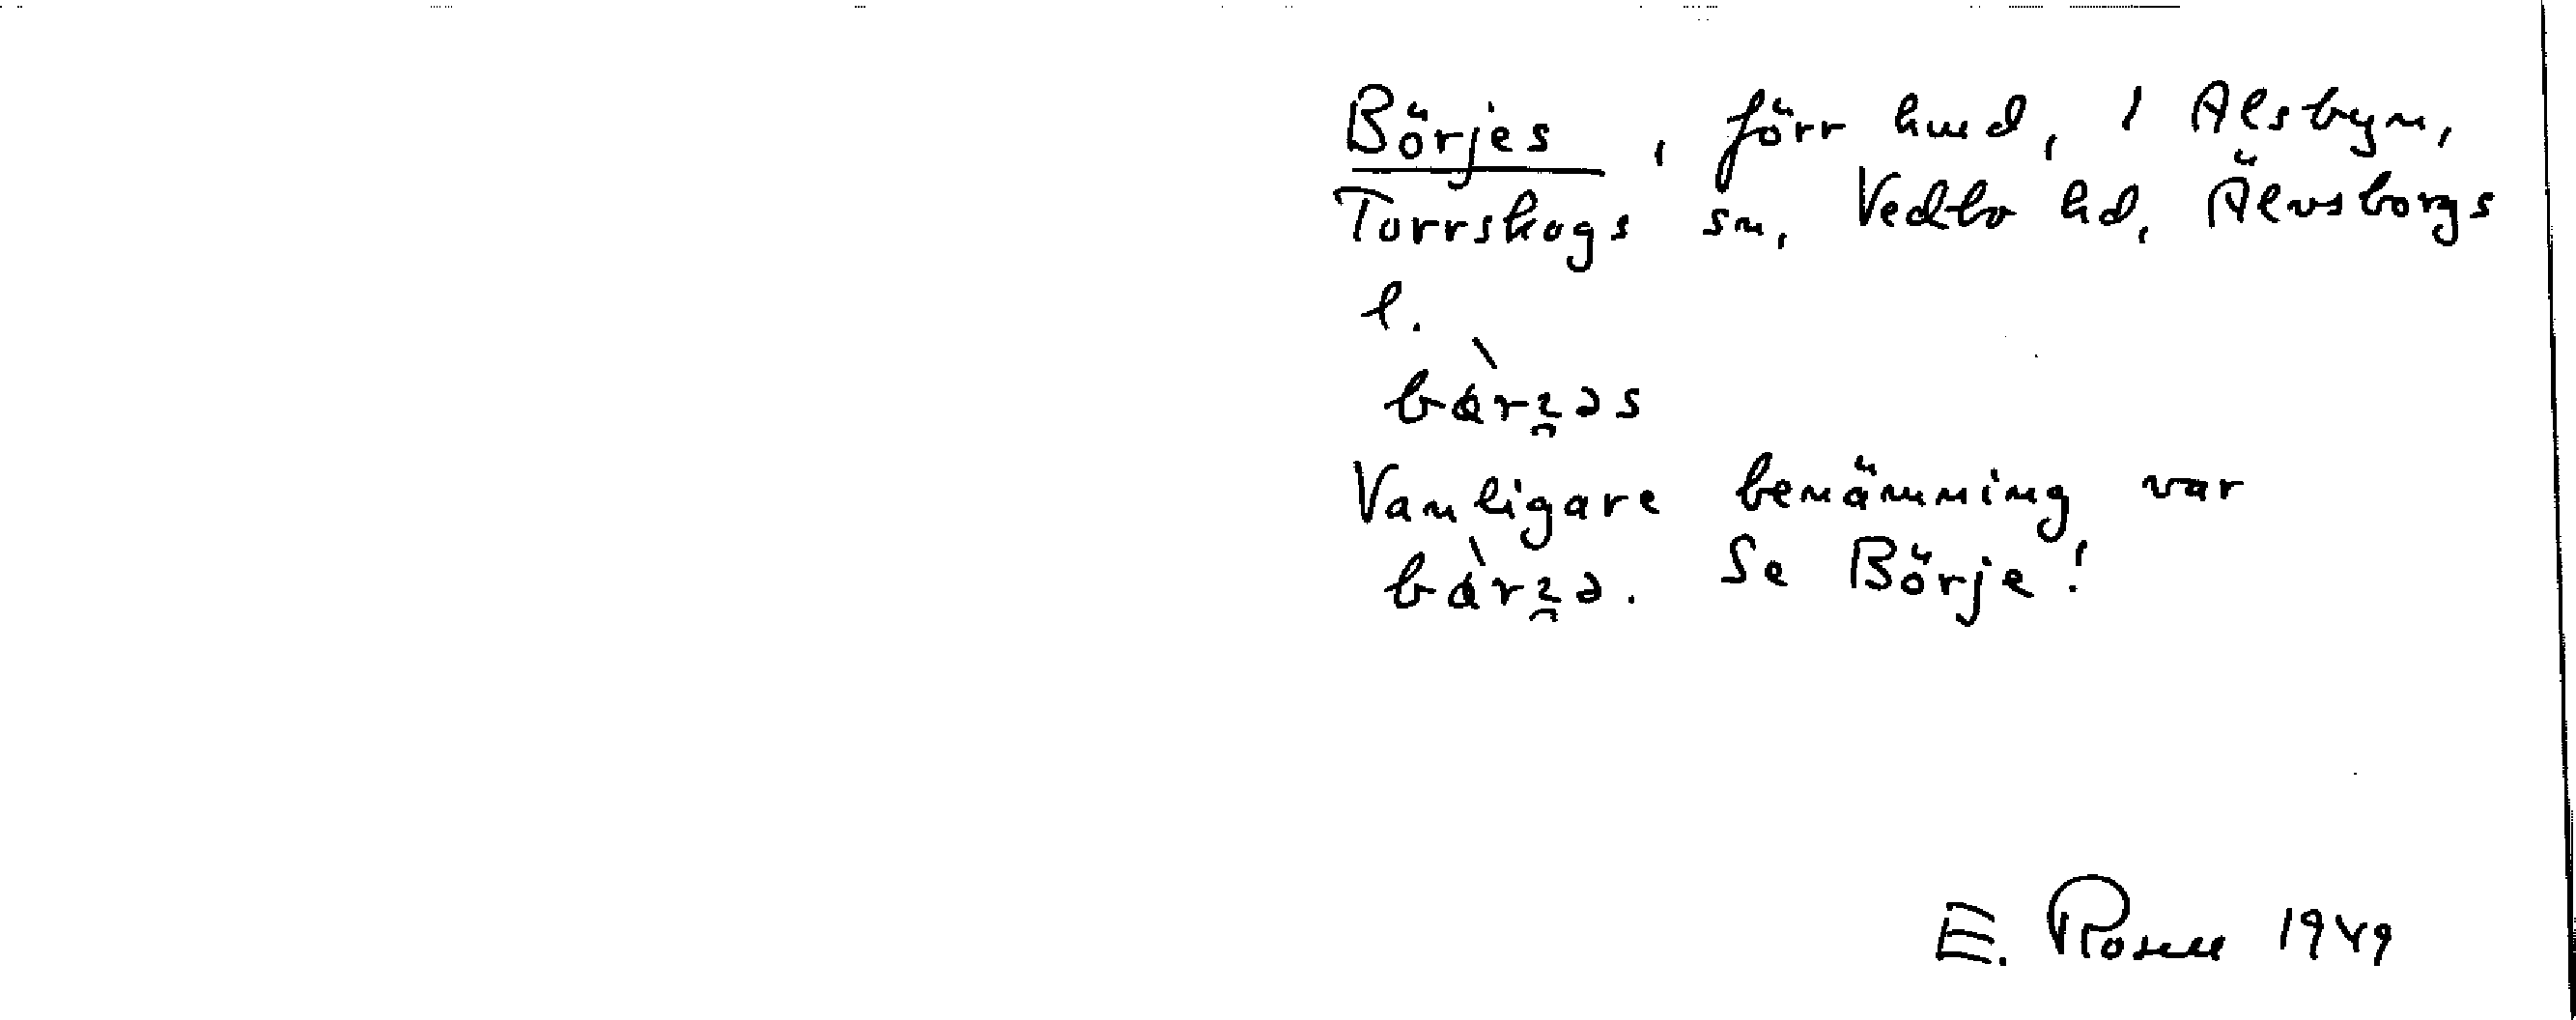 Börjes, förr hmd, i Älsbyn,
Torrskogs sn, Vedbo hd, Älvsborgs
l.
Vanligare benämning var
Se Börje!
E. Rosell 1949